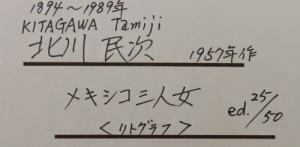 1894～1989年
KITAGAWA Tamiji
北川 民次 1957年作
メキシコ三人女
<リトグラフ> ed. 25/50